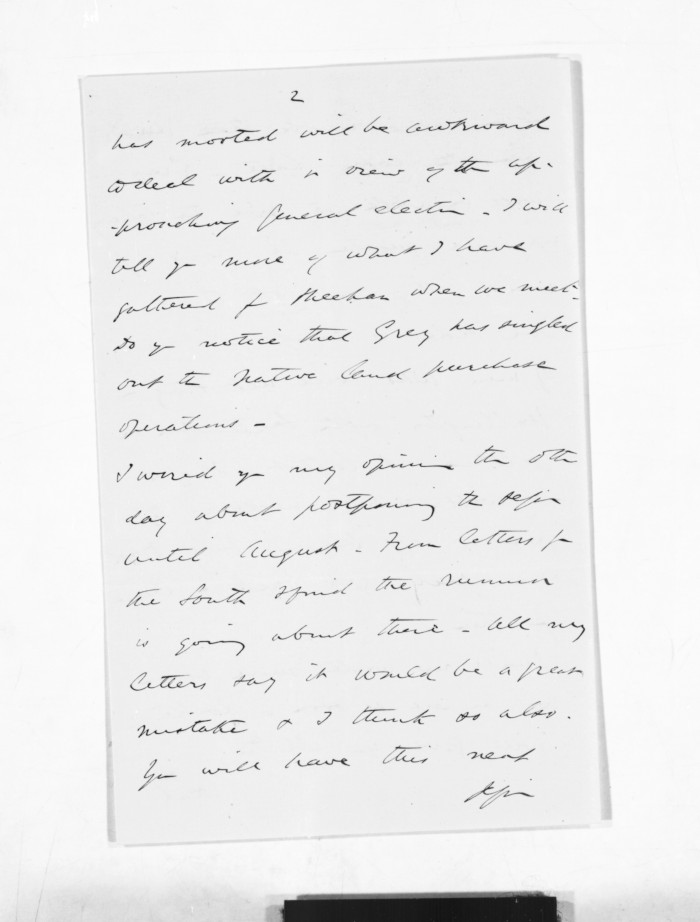 2
has mooted will be awkward
to deal with in view of the ap-
-proaching General election - I will
tell you more of what I have
gathered fr Sheehan when we meet -
Do you notice that Grey has singled
out the Native land purchase
operations -
I wired you my opinion the other
day about postponing the session
until August - From letters fr
the South I find the rumour
is going about there - All my
letters say it would be a great
mistake & I think so also.
You will have this next
session